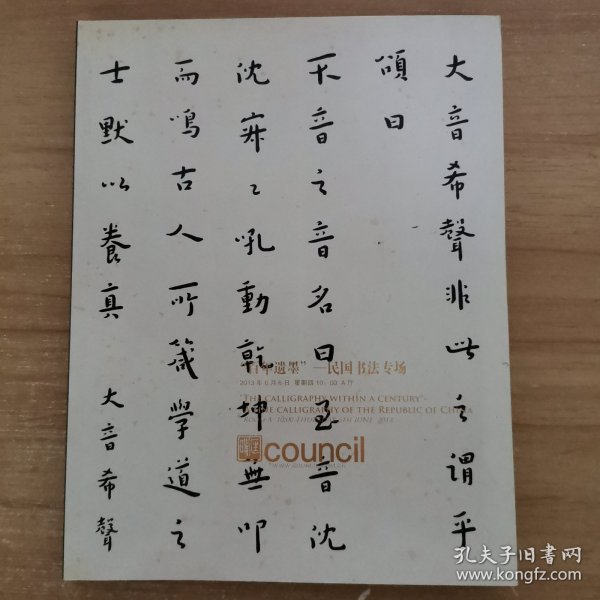 大音希聲非此之謂乎
頌曰
不音之音名曰至音沈
沈寐々吼動乾坤無叩
而鳴古人所箴學道之
士默以養真
大音希聲
"百年遗墨"—民国书法专场
2013年6月6日 星期四 10:00 A厅
"The calligraphy within a century"-
the calligraphy of the Republic of China
Room A 10:00 Thursday 6th June 2013
council
孔夫子旧书网
www.kongfz.com